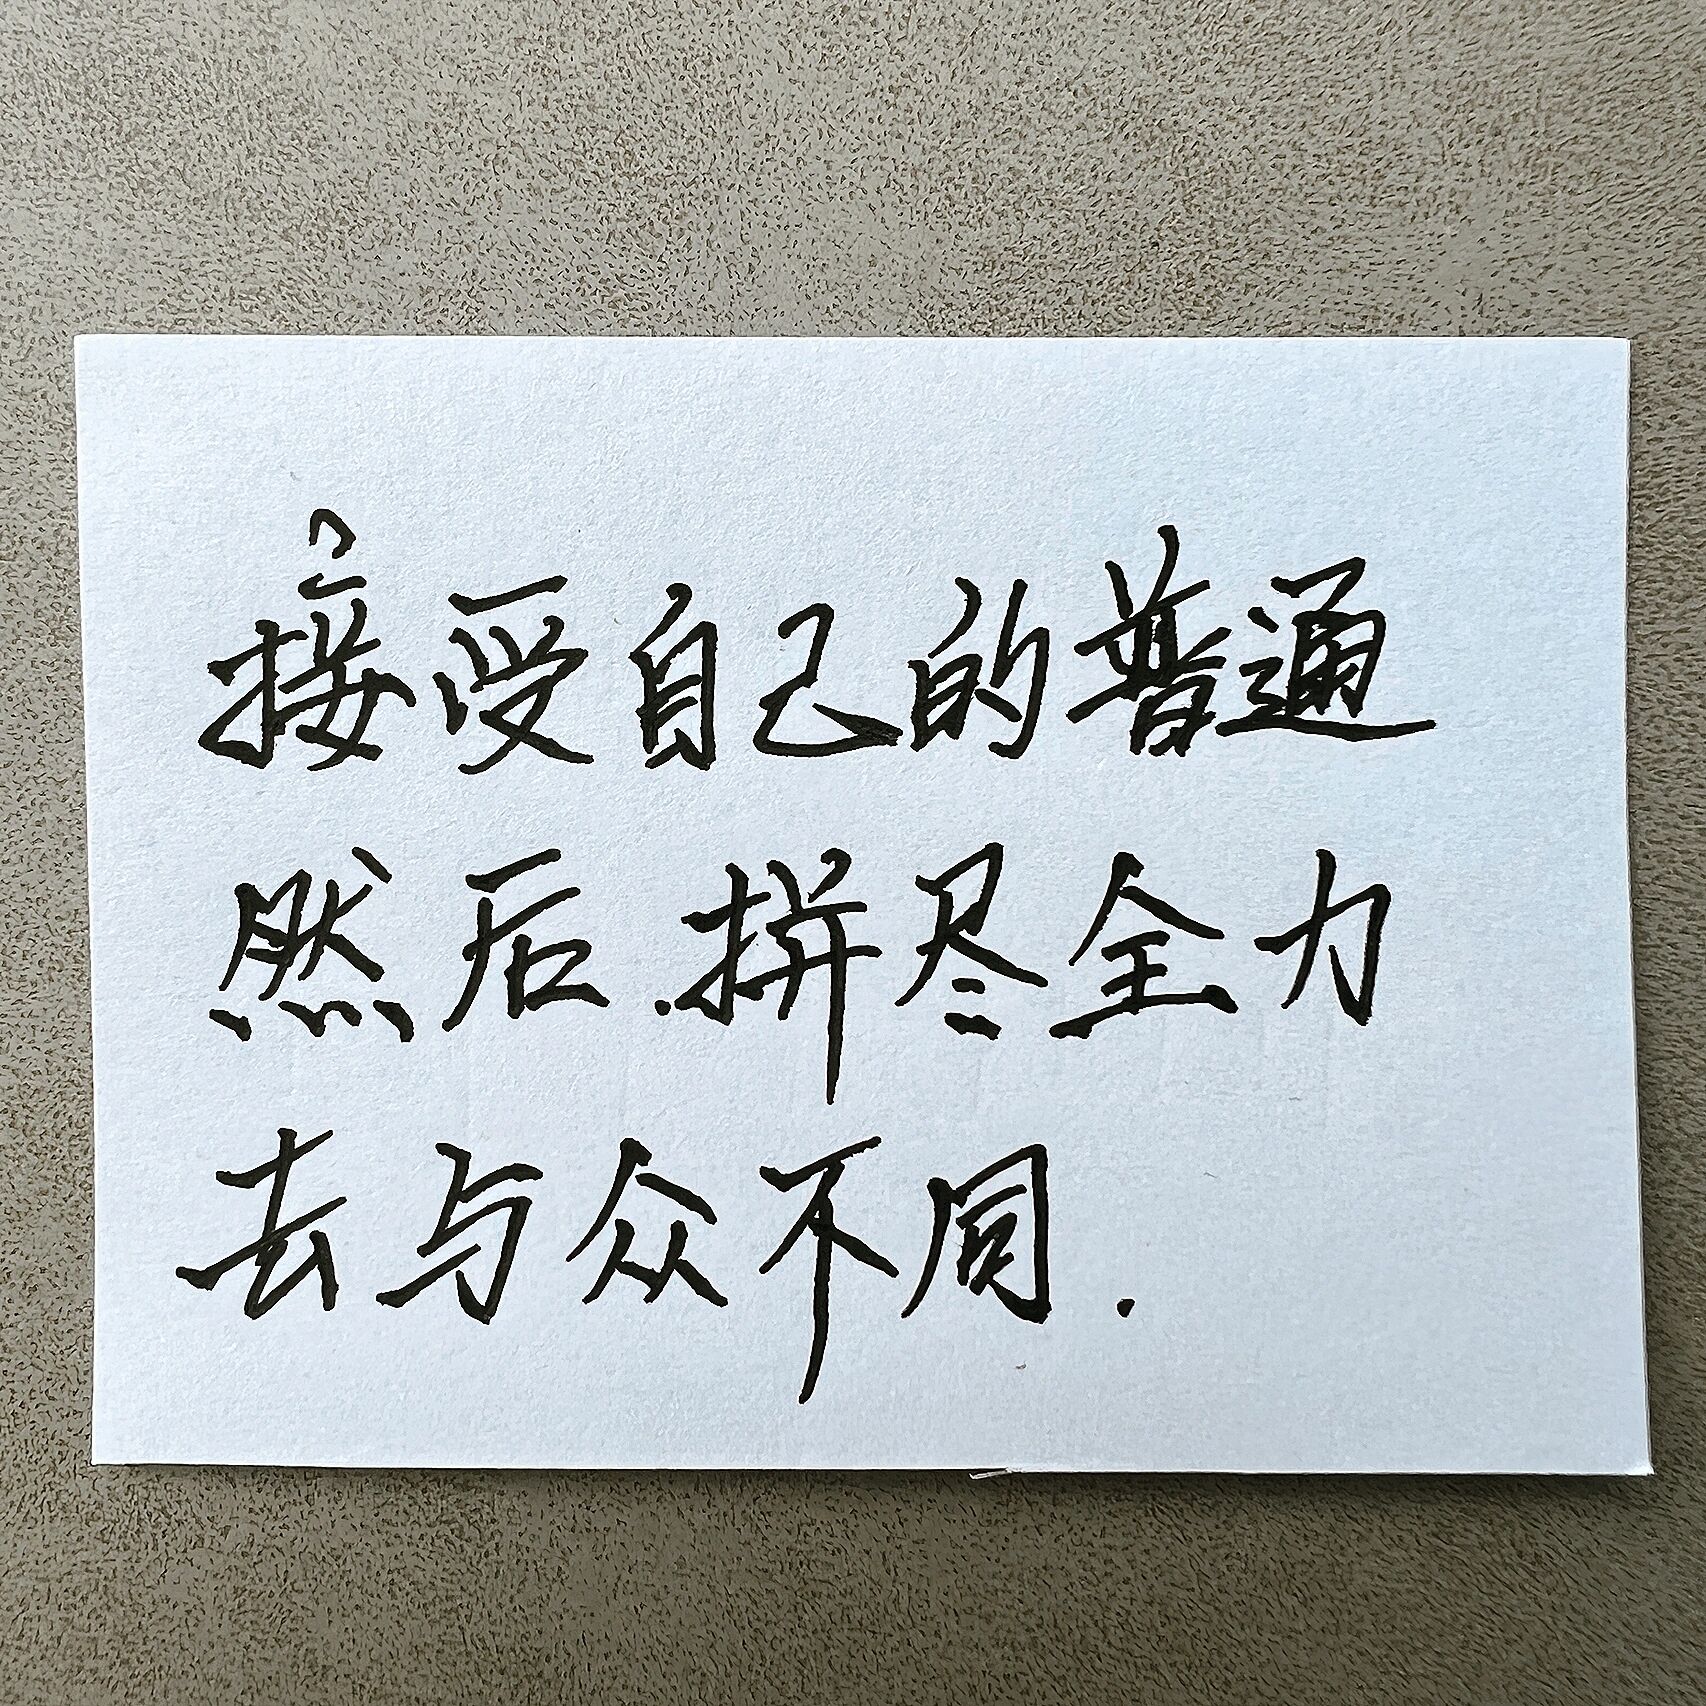 接受自己的普通
然后.拼尽全力
去与众不同.